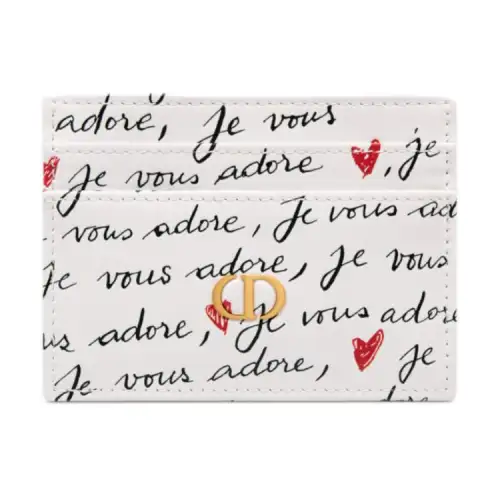 adore, Je vous
Je vous adore, je
vous adore, Je vous adore
Je vous adore, Je vous
us adore, Je vous adore
Je vous adore, je
CD